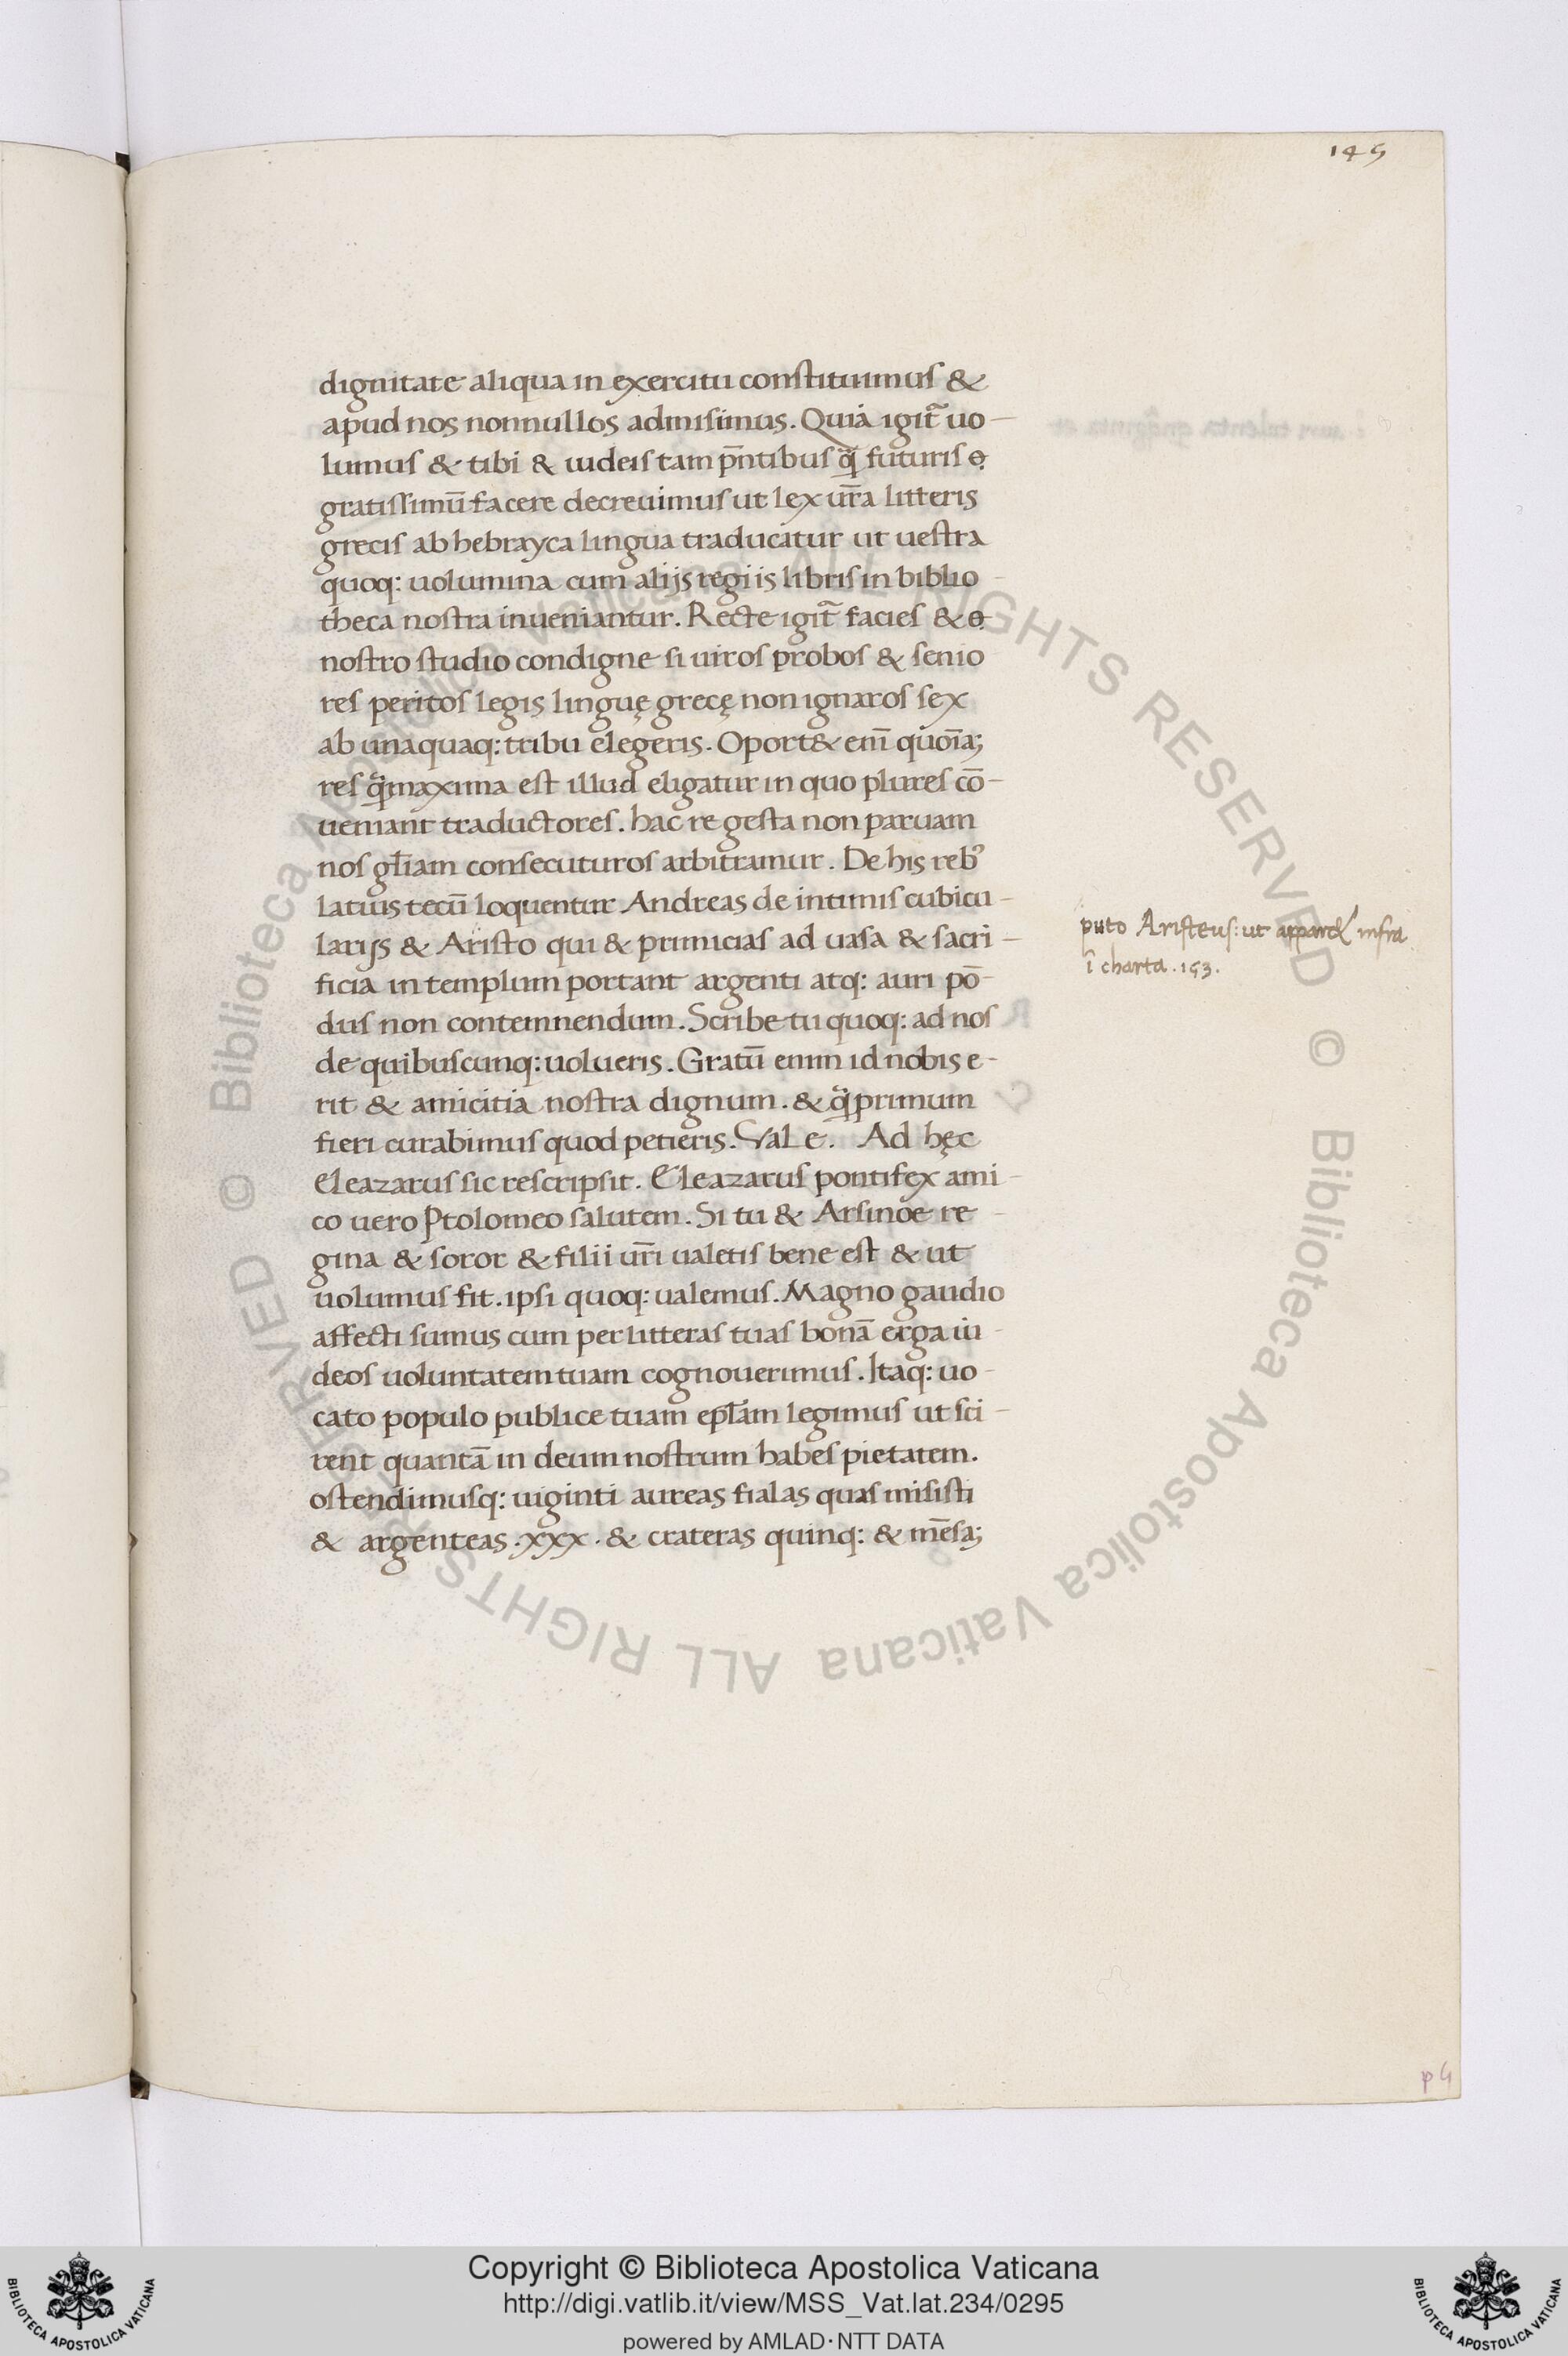 145
dignitate aliqua in exercitu constituimus &
apud nos nonnullos admisimus. Quia igit̃ uo-
lumus & tibi & iudeis tam p̄ntibus q̃ futuris
gratissimū facere decreuimus ut lex ur̄a litteris
grecis ab hebrayca lingua traducatur ut uestra
quoq: uolumina cum alijs regiis libris in biblio-
theca nostra inueniantur. Recte igit̃ facies &
nostro studio condigne si uiros probos & senio
res peritos legis linguę grecę non ignaros sex
ab unaquaq: tribu elegeris. Oport& eni̅ quoi̅a;
res q̃maxima est illud eligatur in quo plures cō-
ueniant traductores. hac re gesta non paruam
nos gl̄iam consecuturos arbitramur. De his reb⁹
latius tecū loquentur Andreas de intimis cubicu-
larijs & Aristo qui & primicias ad uasa & sacri-
ficia in templum portant argenti atq: auri pō-
dus non contemnendum. Scribe tu quoq: ad nos
de quibuscunq: uolueris. Gratū enim id nobis e-
rit & amicitia nostra dignum. & q̃primum
fieri curabimus quod petieris. Vale. Ad hęc
Eleazarus sic rescripsit. Eleazarus pontifex ami-
co uero Ptolomeo salutem. Si tu & Arsinoe re-
gina & soror & filii ur̄i ualetis bene est & ut
uolumus fit. ipsi quoq: ualemus. Magno gaudio
affecti sumus cum per litteras tuas bonā erga iu-
deos uoluntatem tuam cognouerimus. Itaq: uo-
cato populo publice tuam epl̄am legimus ut sci-
rent quantā in deum nostrum habes pietatem.
ostendimusq: uiginti aureas fialas quas misisti
& argenteas .xxx. & crateras quinq: & mēsa;
puto Aristeus: ut appar& infra
ī charta .153.
p 5
© Biblioteca Apostolica Vaticana ALL RIGHTS RESERVED © Biblioteca Apostolica Vaticana ALL RIGHTS RESERVED
Copyright © Biblioteca Apostolica Vaticana
http://digi.vatlib.it/view/MSS_Vat.lat.234/0295
powered by AMLAD·NTT DATA
BIBLIOTECA APOSTOLICA VATICANA
BIBLIOTECA APOSTOLICA VATICANA